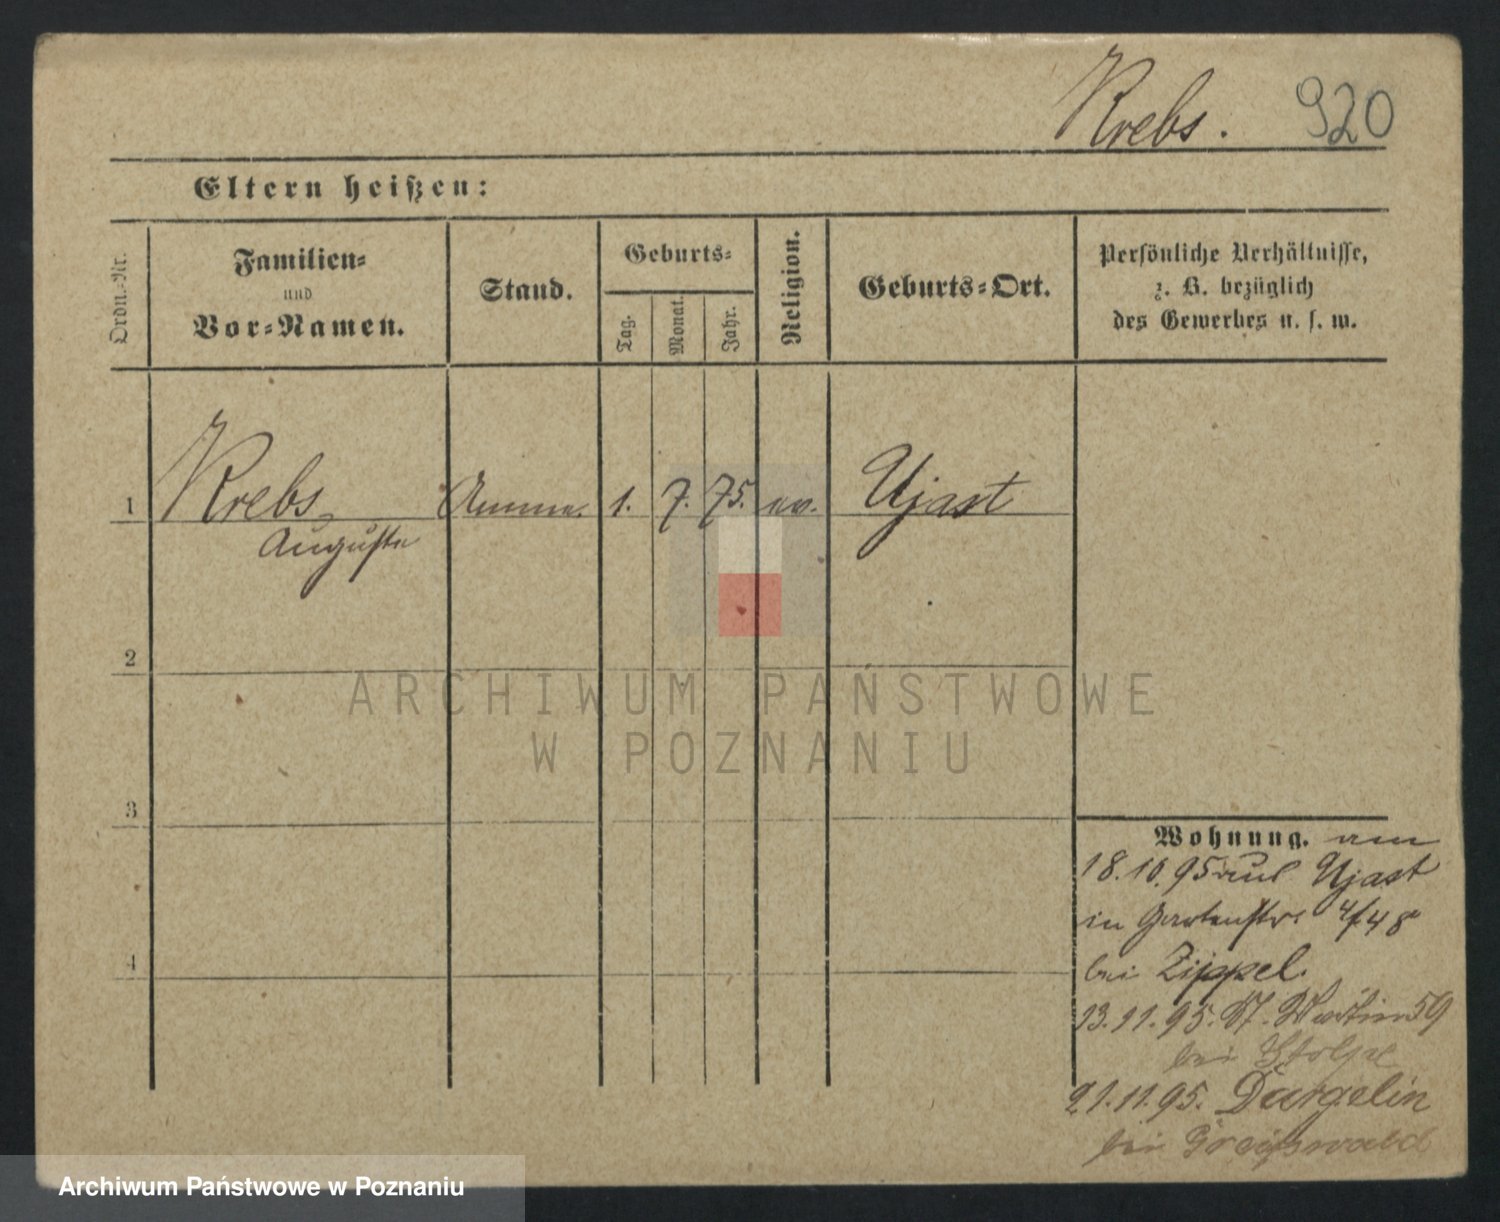 Krebs. 920
Eltern heißen:
Ordn.-Nr.
Familien-
und
Vor-Namen.
Stand.
Geburts-
Tag.
Monat.
Jahr.
Religion.
Geburts-Ort.
Persönliche Verhältnisse,
z. B. bezüglich
des Gewerbes u. s. w.
1 Krebs Amme. 1. 7. 75. ev. Ujast
Auguste
2
3
4
Wohnung. am
18.10.95 aus Ujast
in Gartenstr.
bei Zippel.
13.11.95. St. Martin 59
bei Stolpe
21.11.95. Dargelin
bei Greifswald
ARCHIWUM PAŃSTWOWE
W POZNANIU
Archiwum Państwowe w Poznaniu